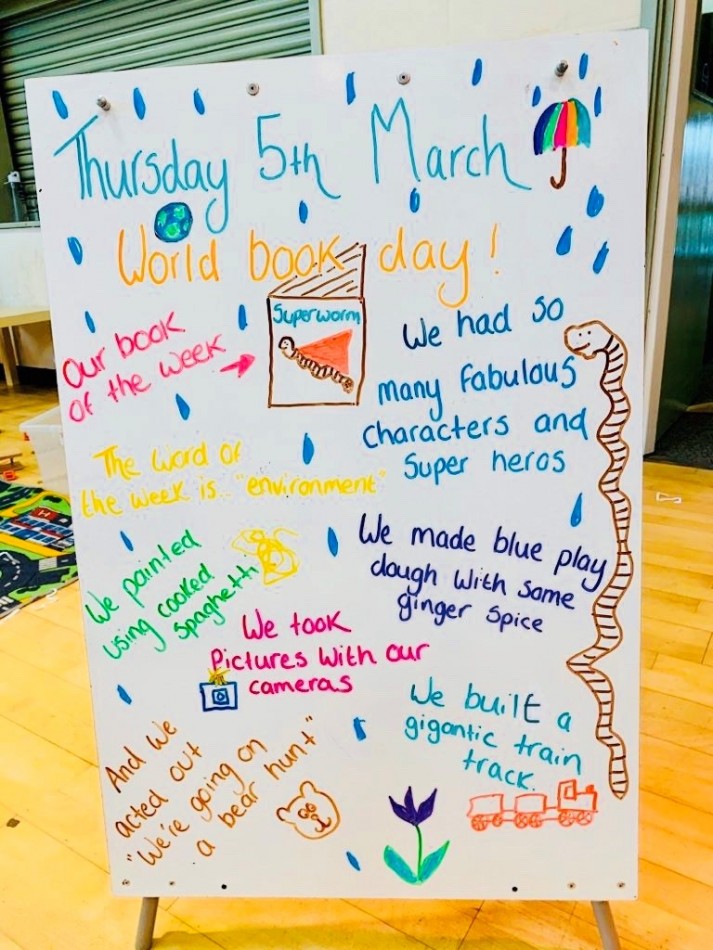 Thursday 5th March
World book day!
Our book
of the week
Superworm
We had so
many fabulous
Characters and
Super heros
The word of
the week is.. "environment"
We painted
using cooked
spaghetti
We made blue play
dough with some
ginger spice
We took
Pictures with our
cameras
We built a
gigantic train
track.
And we
acted out
"We're going on
a bear hunt"